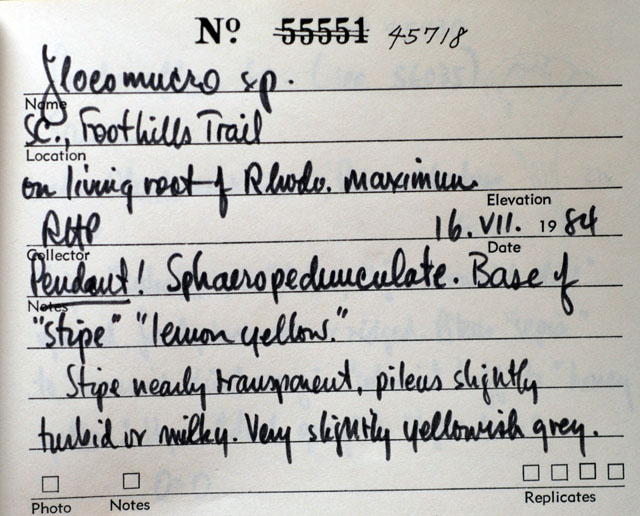 Nº 55551 45718
Gloeomucro sp.
Name
SC., Foothills Trail
Location
on living root of Rhodo. maximum
Elevation
RHP 16. VII. 1984
Collector Date
Pendant! Sphaeropedunculate. Base of
Notes
"stipe" "lemon yellow."
Stipe nearly transparent, pileus slightly
turbid or milky. Very slightly yellowish grey.
Photo Notes Replicates